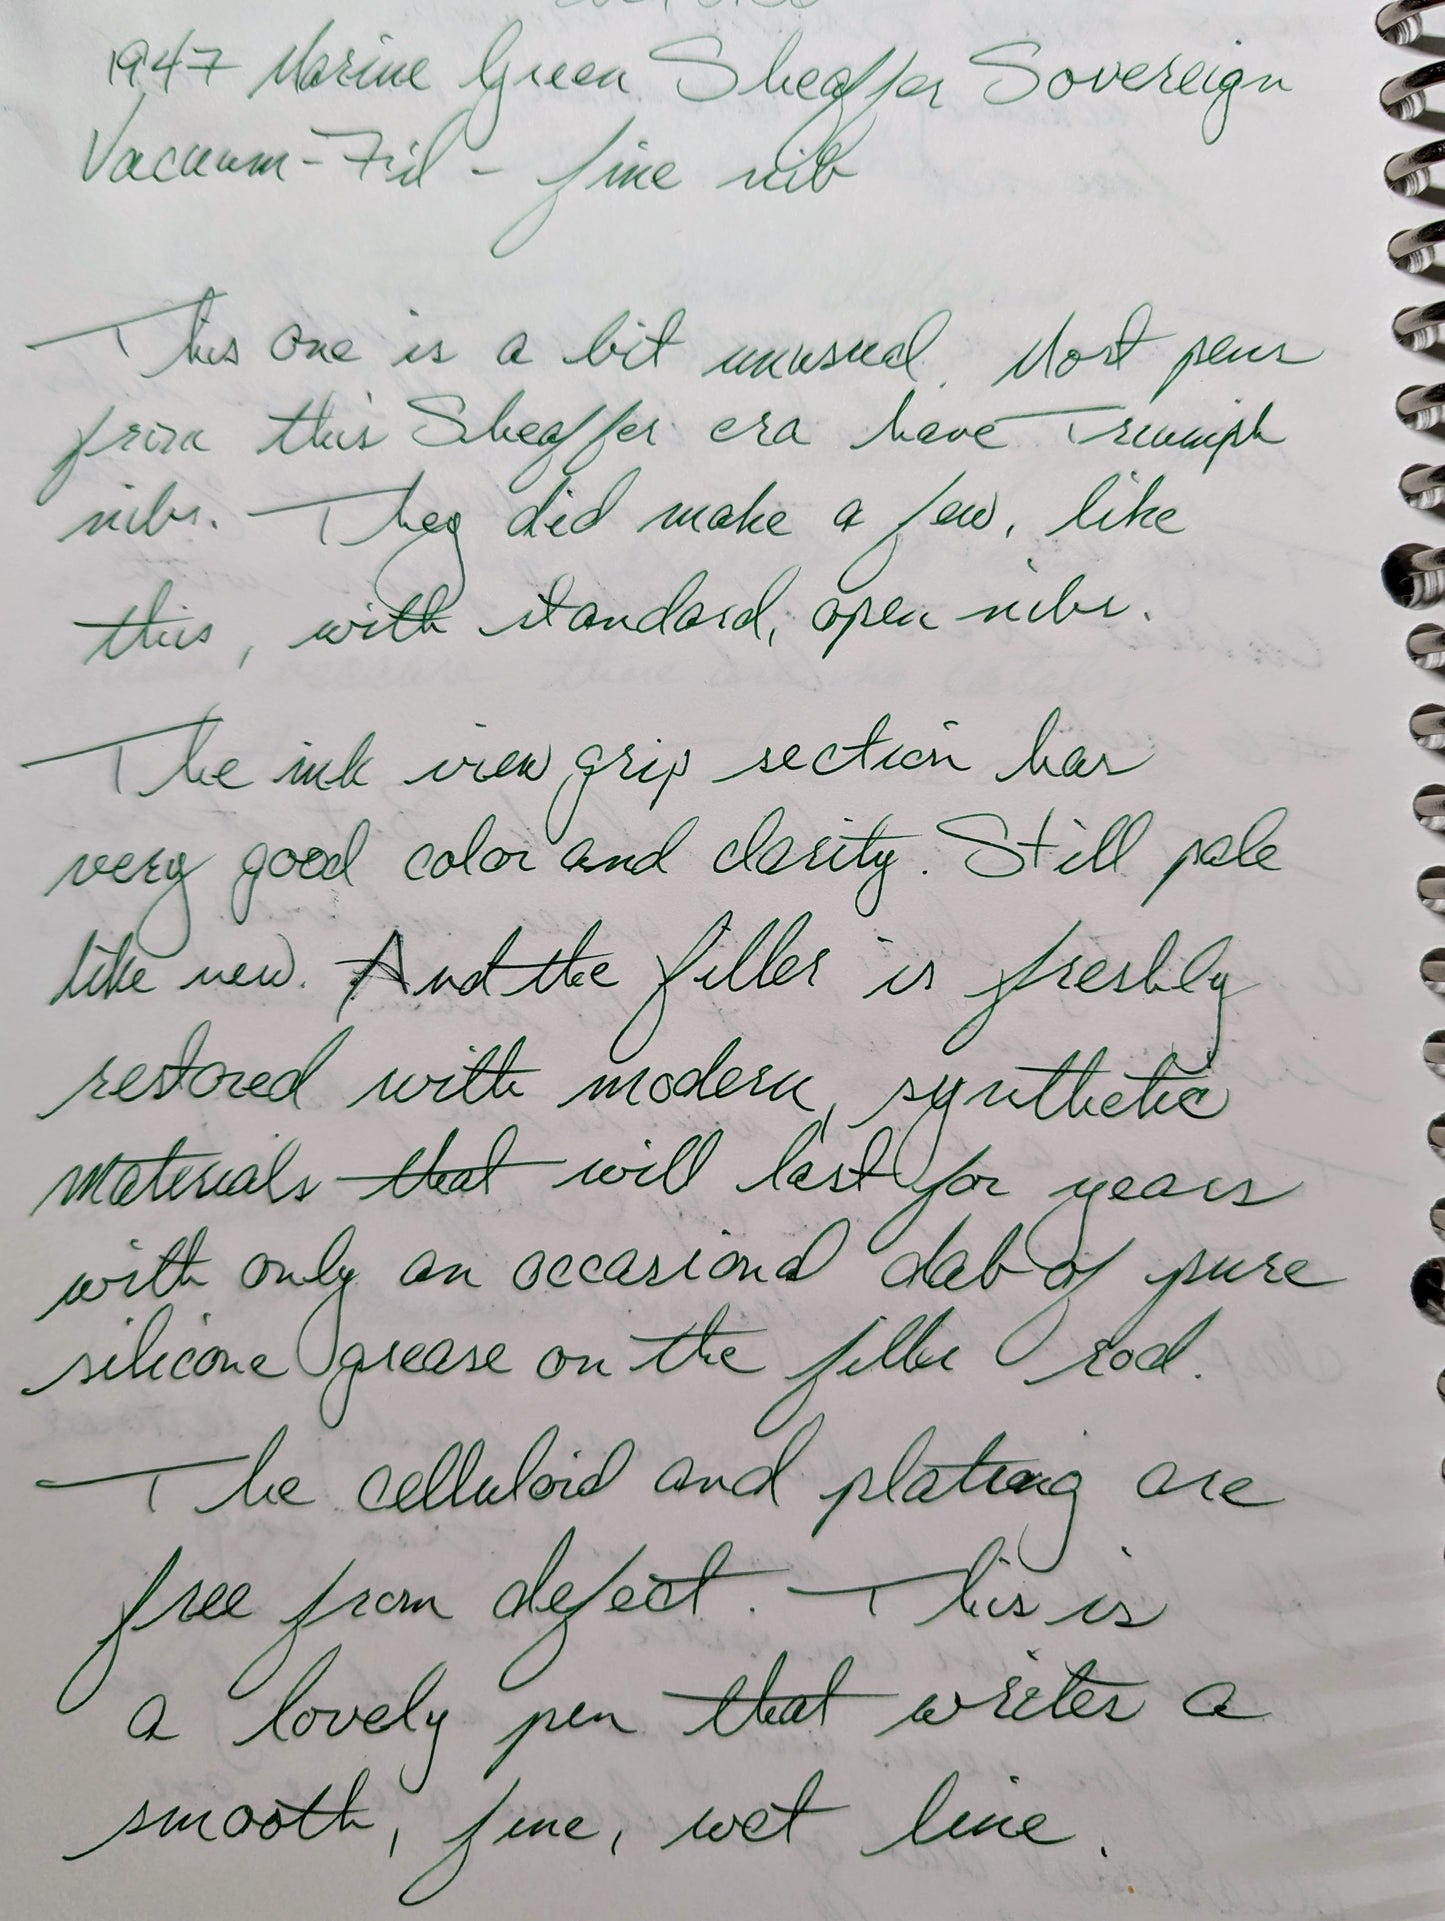 1947 Marine Green Sheaffer Sovereign
Vacuum-Fil - fine nib
This one is a bit unusual. Most pens
from this Sheaffer era have Triumph
nibs. They did make a few, like
this, with standard, open nibs.
The ink view grip section has
very good color and clarity. Still pale
like new. And the filler is freshly
restored with modern, synthetic
materials that will last for years
with only an occasional dab of pure
silicone grease on the filler rod.
The celluloid and plating are
free from defect. This is
a lovely pen that writes a
smooth, fine, wet line.